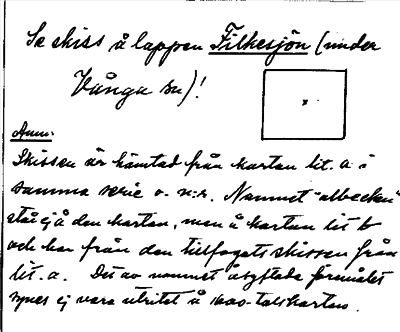 Se skiss å lappen Filkesjön (under
Vånga sn)!
Anm.
Skissen är hämtad från kartan lit. a i
samma serie o. n:r. Namnet "albecken"
står ej å den kartan, men å kartan lit b
och har från den tillfogats skissen från
lit. a. Det av namnet åsyftade föremålet
synes ej vara utritat å 1600-talskartan.